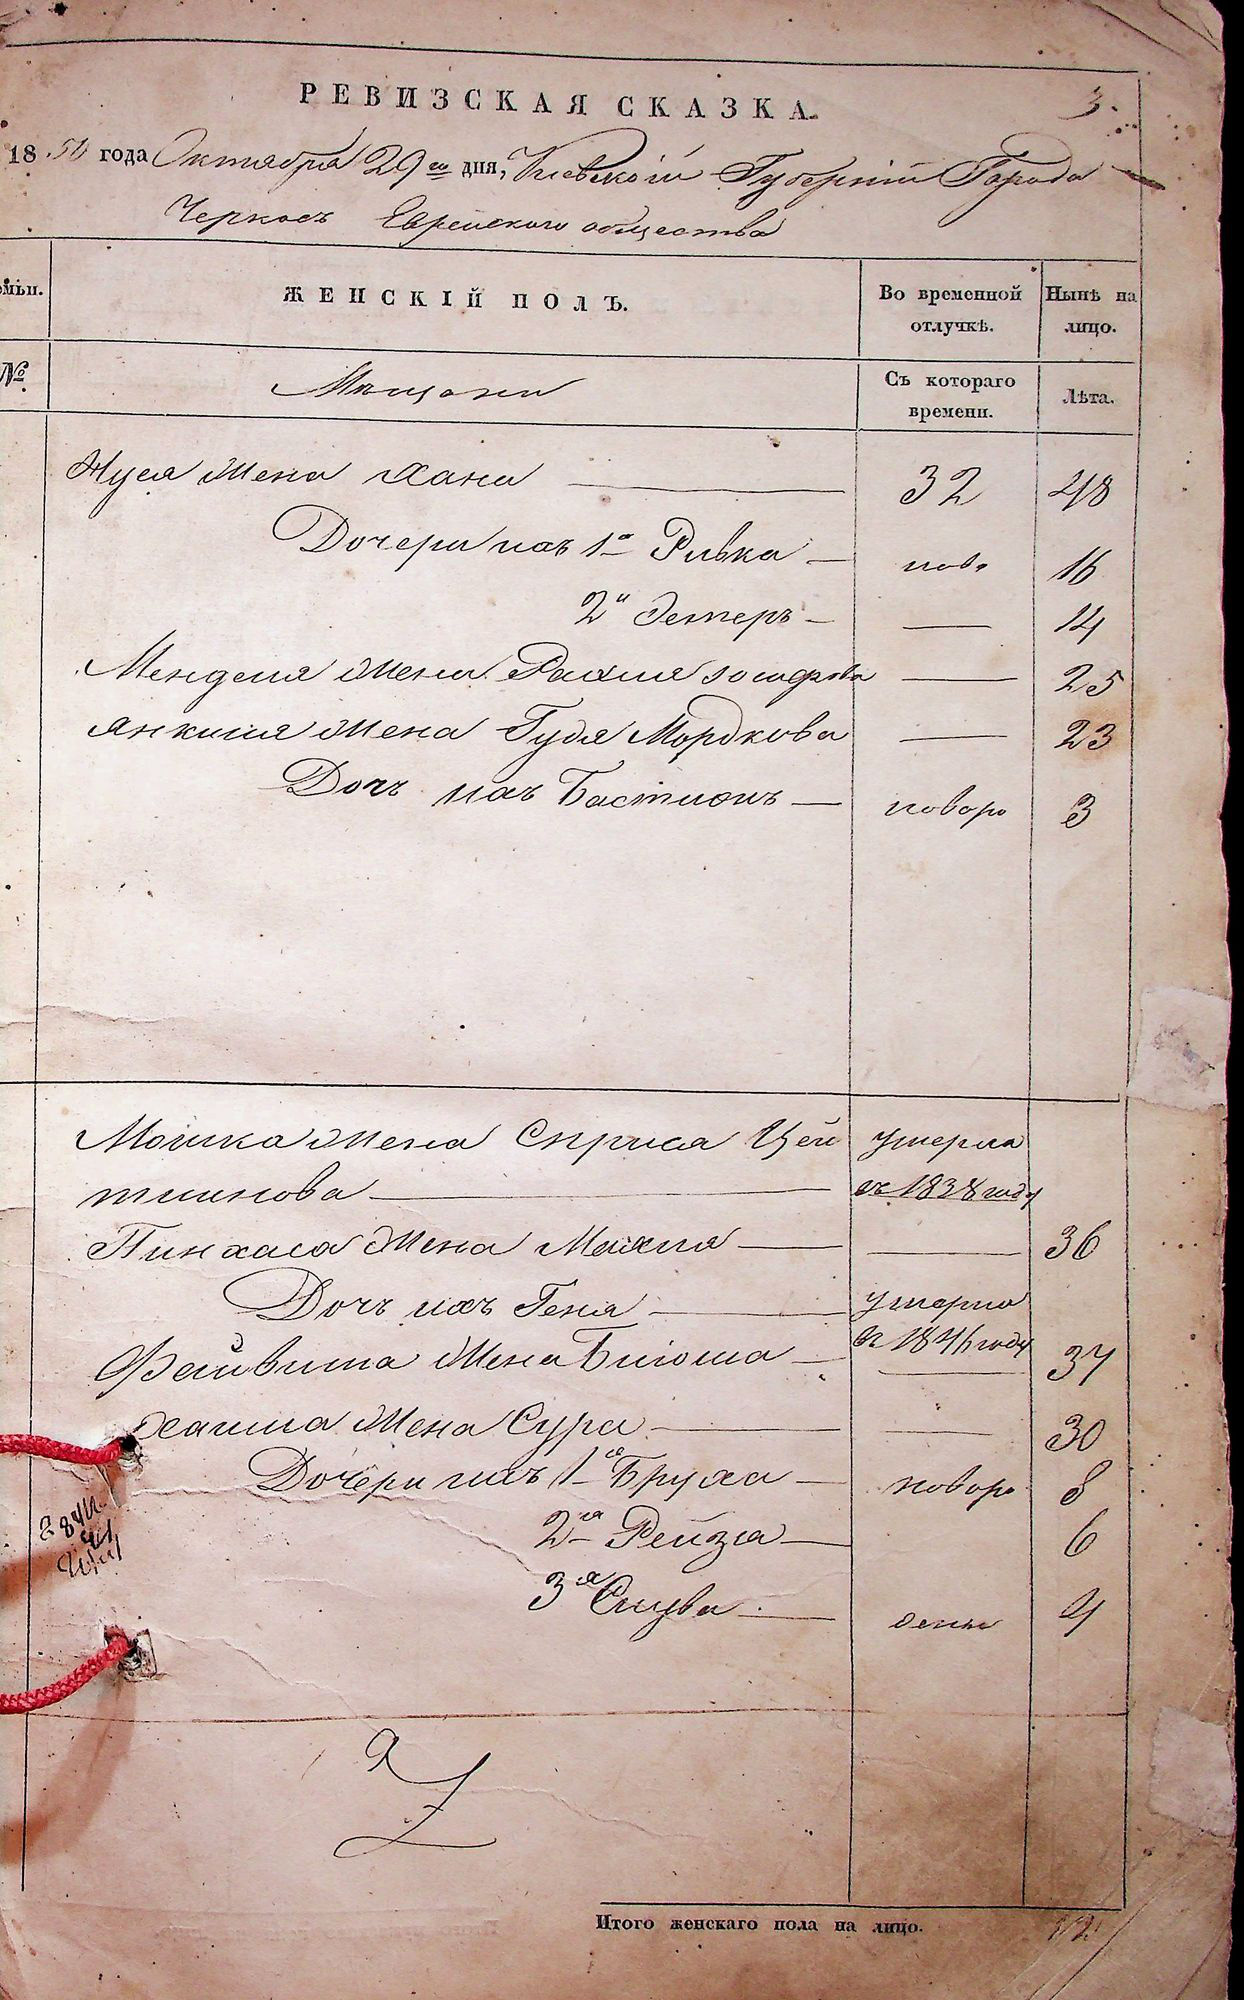 РЕВИЗСКАЯ СКАЗКА. 3.
1850 года Октября 29го дня, Киевской Губерніи Города
Черкасъ Еврейскаго общества
ЖЕНСКІЙ ПОЛЪ.
Во временной отлучкѣ.
Нынѣ на лицо.
№
Мѣщани
Съ котораго времени.
Лѣта.
Нуся жена Хана 32 48
Дочери ихъ 1я Ривка ново 16
2я Эстеръ — 14
Менделя жена Рахля Іосифова — 25
Янкиля жена Гудя Мордкова — 23
Дочь ихъ новоро 3
Мошка жена Сприса Цей умерла
тлинова въ 1838 году
Пинхаса жена Махля — 36
Дочь ихъ Геня умерла
въ 1846 году
Файвиша жена — 37
Хаима жена Сура — 30
Дочери ихъ 1я Бруха новоро 8
2я Рейза 6
3я 4
Итого женскаго пола на лицо. 12